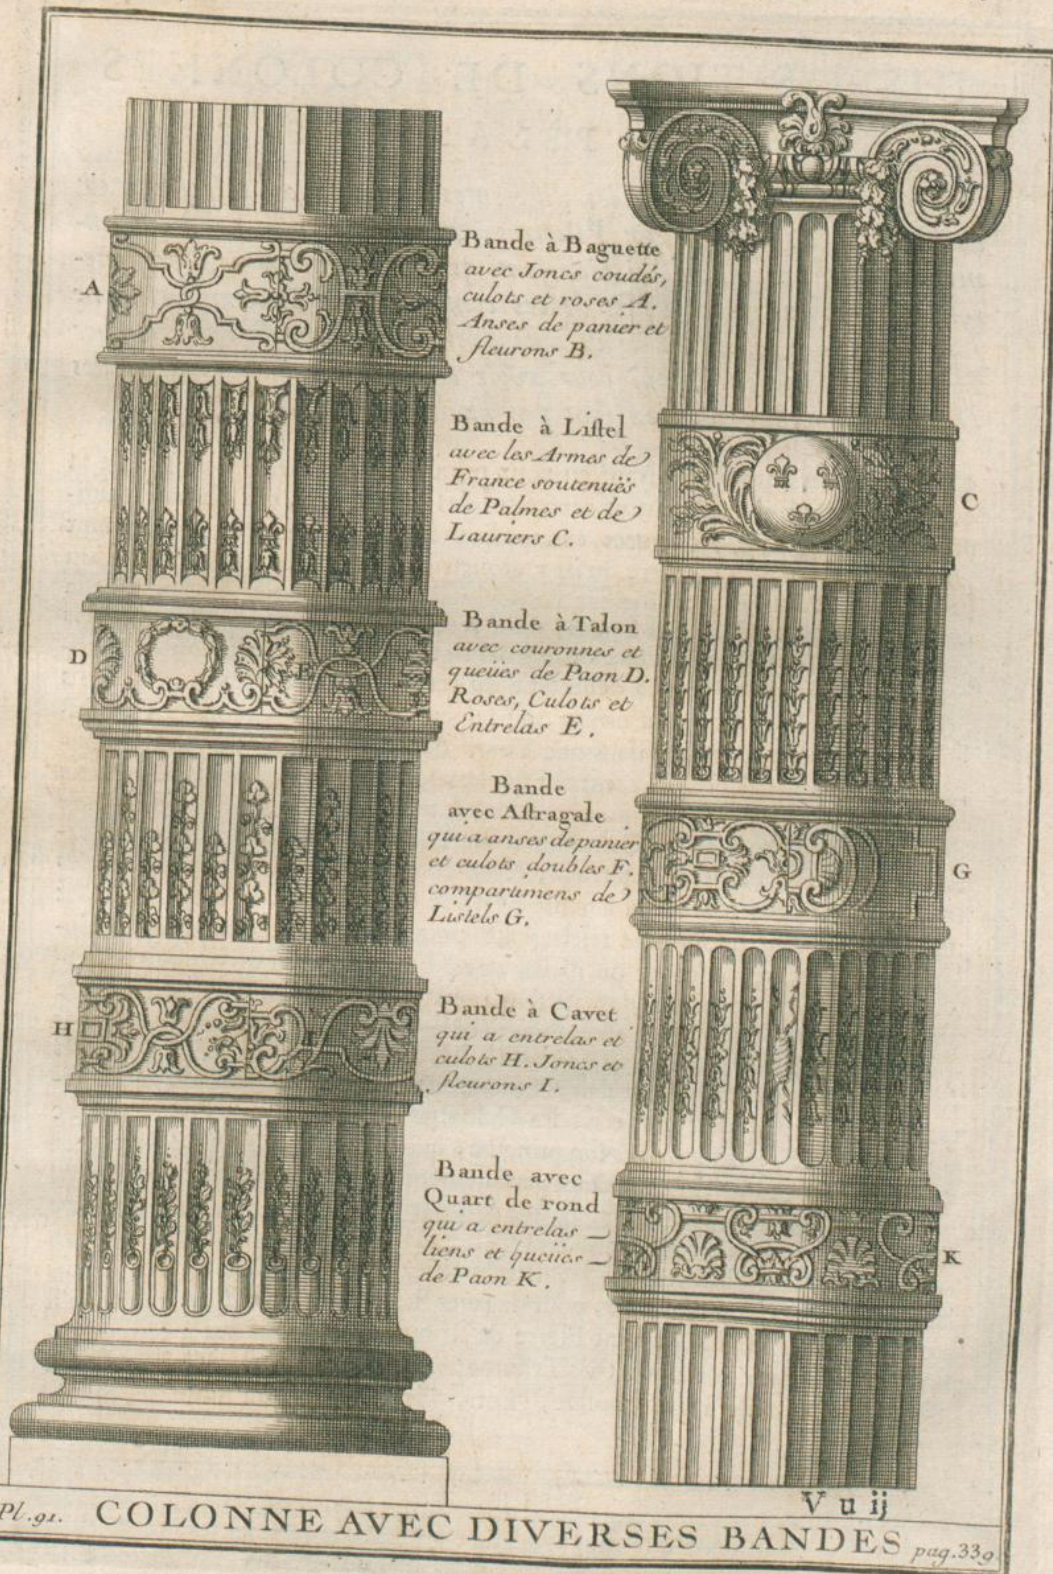 Bande à Baguette
avec Joncs coudés,
culots et roses A.
Anses de panier et
fleurons B.
A
Bande à Listel
avec les Armes de
France soutenuës
de Palmes et de
Lauriers C.
C
Bande à Talon
avec couronnes et
queües de Paon D.
Roses, Culots et
Entrelas E.
D
E
Bande
avec Astragale
qui a anses de panier
et culots doubles F.
compartimens de
Listels G.
F
G
Bande à Cavet
qui a entrelas et
culots H. Joncs et
fleurons I.
H
I
Bande avec
Quart de rond
qui a entrelas
liens et queües
de Paon K.
K
V u ij
Pl. 91. COLONNE AVEC DIVERSES BANDES pag. 339.